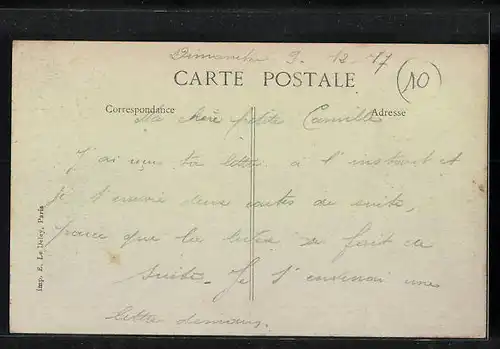 Dimanche 9-12-17
CARTE POSTALE
10
Correspondance
Adresse
Ma chère petite Camille
J'ai reçus ta lettre à l'instant et
je t'envoie deux cartes de suite,
parce que la lettre se fait de
suite. Je t'enverrai une
lettre demain.
Imp. E. Le Deley, Paris